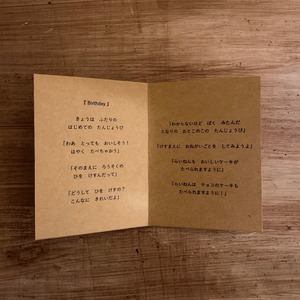 【 Birthday 】
きょうは ふたりの
はじめての たんじょうび
「わあ とっても おいしそう!
はやく たべちゃおう」
「そのまえに ろうそくの
ひを けすんだって」
「どうして ひを けすの?
こんなに きれいだよ」
「わからないけど ぼく みたんだ
となりの おとこのこの たんじょうび」
「けすまえに おねがいごとを してみようよ」
「らいねんも おいしいケーキが
たべられますように」
「らいねんは チョコのケーキも
たべられますように!」